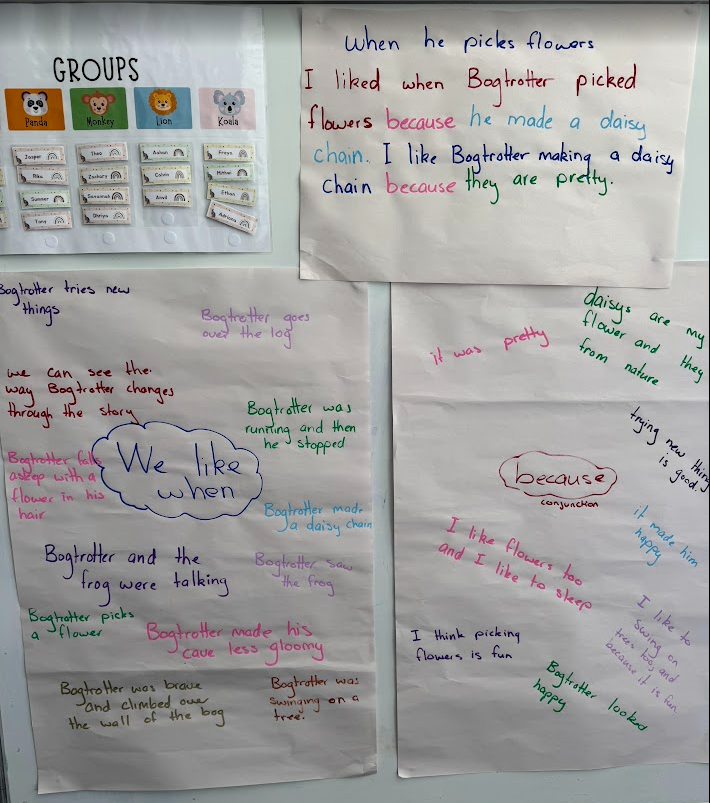 GROUPS
Panda
Monkey
Lion
Koala
Jasper
Theo
Ashun
Freya
Zachary
Calvin
Sumner
Savannah
Anvil
Ethan
Tony
Shriya
Adriana
When he picks flowers
I liked when Bogtrotter picked
flowers because he made a daisy
chain. I like Bogtrotter making a daisy
chain because they are pretty.
Bogtrotter tries new
things
Bogtrotter goes
over the log
we can see the
way Bogtrotter changes
through the story
Bogtrotter was
running and then
he stopped
Bogtrotter falls
asleep with a
flower in his
hair
We like
when
Bogtrotter made
a daisy chain
Bogtrotter and the
frog were talking
Bogtrotter saw
the frog
Bogtrotter picks
a flower
Bogtrotter made his
cave less gloomy
Bogtrotter was brave
and climbed over
the wall of the bog
Bogtrotter was
swinging on a
tree.
it was pretty
daisys are my
flower and they
from nature
trying new thing
is good.
because
conjunction
it made him
happy
I like flowers too
and I like to sleep
I like to
swing on
trees too, and
because it is fun
I think picking
flowers is fun
Bogtrotter looked
happy